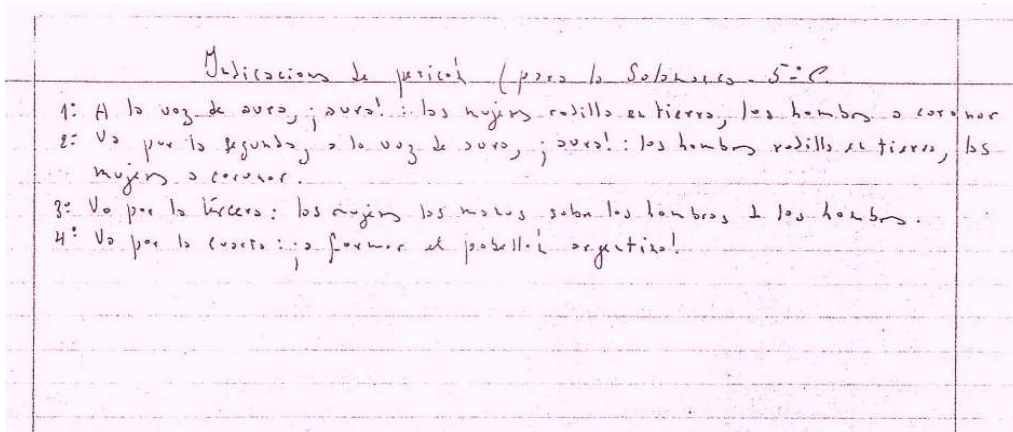 Indicaciones de pericón (para la Salamanca. 5º C.
1º A la voz de aura, ¡aura!: las mujeres rodilla en tierra, los hombres a coronar
2º Va por la segunda, a la voz de aura, ¡aura!: los hombres rodilla en tierra, las
mujeres a coronar.
3º Va por la tercera: las mujeres las manos sobre los hombros de los hombres.
4º Va por la cuarta: ¡a formar el pabellón argentino!